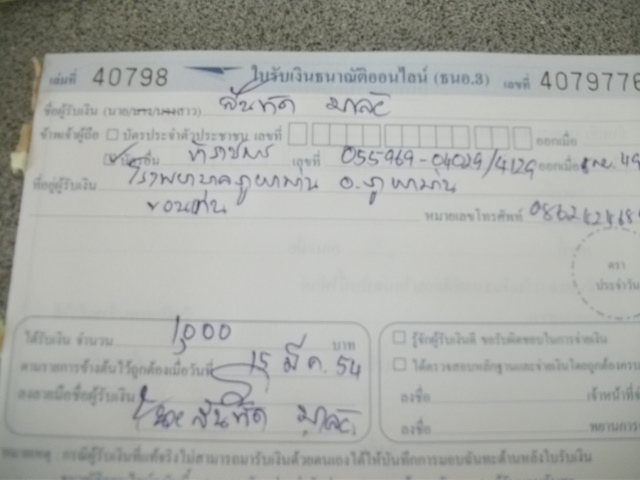 เล่มที่ 40798 ใบรับเงินธนาณัติออนไลน์ (ธนอ.3) เลขที่ 4079776
ชื่อผู้รับเงิน (นาย/นาง/นางสาว) สันทัด
ข้าพเจ้าผู้ถือ บัตรประจำตัวประชาชน เลขที่ ออกเมื่อ
บัตรอื่น ข้าราชการ เลขที่ 055969-04029/4129 ออกเมื่อ
ที่อยู่ผู้รับเงิน โรงพยาบาลภูผาม่าน อ.ภูผาม่าน
ขอนแก่น
หมายเลขโทรศัพท์
ตรา
ประจำวัน
ได้รับเงิน จำนวน 1,000 บาท
ตามรายการข้างต้นไว้ถูกต้องเมื่อวันที่ 15 มี.ค. 54
ลงลายมือชื่อผู้รับเงิน นาย สันทัด
รู้จักผู้รับเงินดี ขอรับผิดชอบในการจ่ายเงิน
ได้ตรวจสอบหลักฐานและจ่ายเงินโดยถูกต้องครบ
ลงชื่อ เจ้าหน้าที่จ่
ลงชื่อ พยานการ
หมายเหตุ : กรณีผู้รับเงินที่แท้จริงไม่สามารถมารับเงินด้วยตนเองได้ ให้บันทึกการมอบฉันทะด้านหลังใบรับเงิน